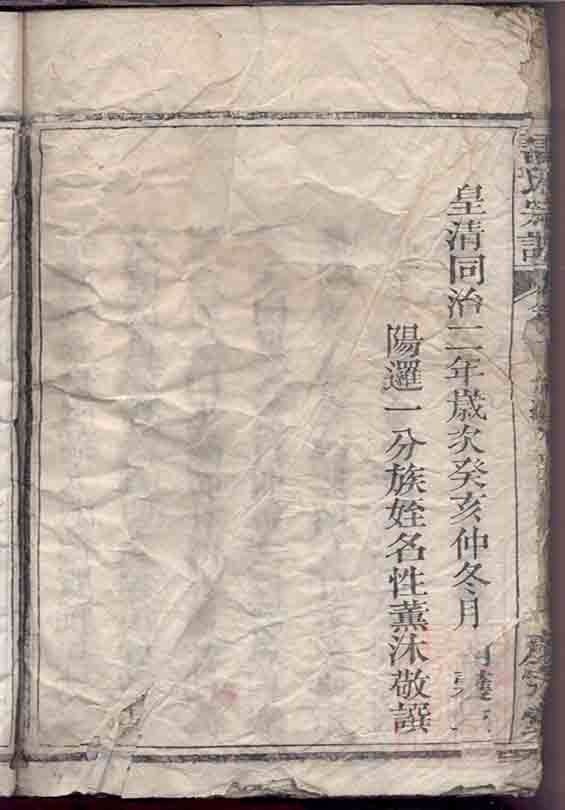 皇清同治二年歲次癸亥仲冬月
陽邏一分族姪名性薰沐敬譔
氏宗譜